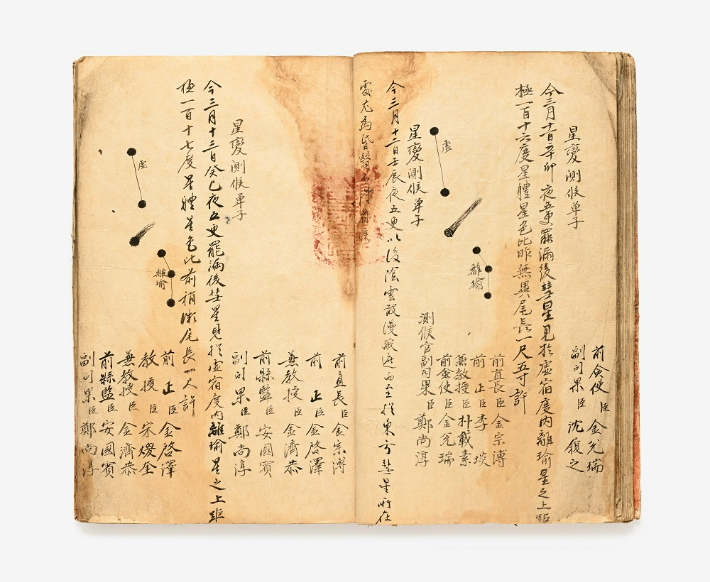 前僉使臣金兌瑞
副司果臣沈
星變測候單子
今三月十一日辛卯夜五更罷漏後彗星見於虛宿度內離瑜星之上距
極一百十六度星體星色比昨無異尾長一尺五寸許
虛
離瑜
前直長臣金宗溥
前正臣李琰
兼教授臣朴載素
前僉使臣金兌瑞
測候官副司果臣鄭尚淳
星變測候單子
今三月十二日壬辰夜五更以後陰雲散漫於東方彗星所在
前直長臣金宗溥
前正臣金啓澤
兼教授臣金濟恭
前縣監臣安國賓
副司果臣鄭尚淳
星變測候單子
今三月十三日癸巳夜五更罷漏後彗星見於虛宿度內離瑜星之上距
極一百十七度星體星色比前稍微尾長一尺許
虛
離瑜
前正臣金啓澤
教授臣宋
兼教授臣金濟恭
前縣監臣安國賓
副司果臣鄭尚淳